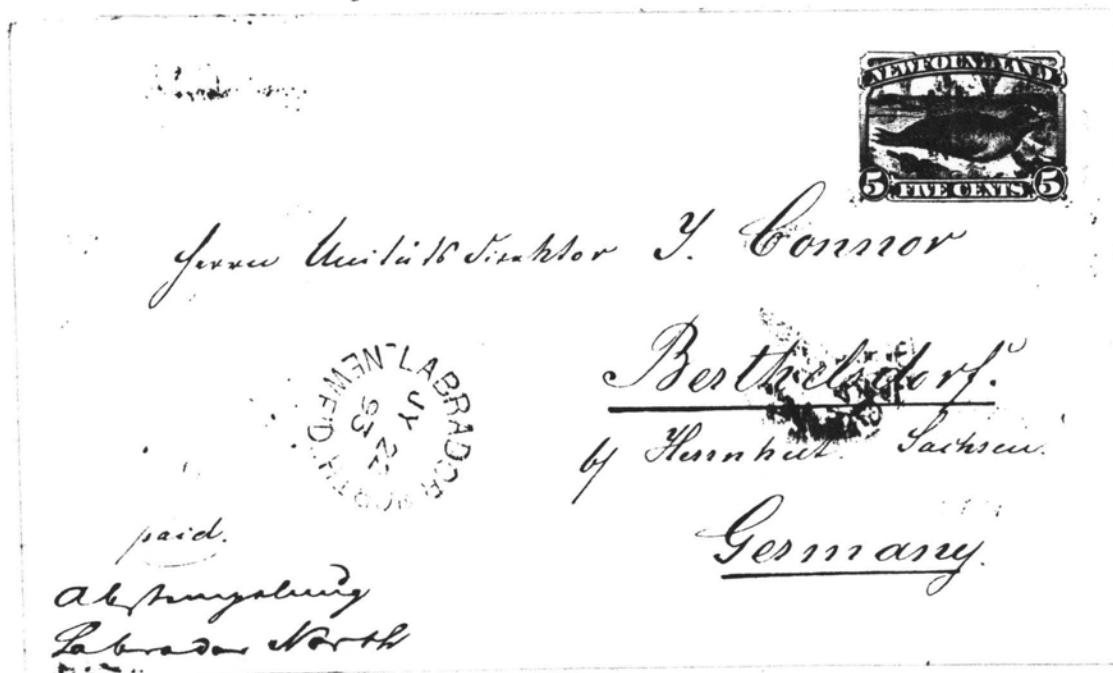 NEWFOUNDLAND
5 FIVE CENTS 5
Herrn Unitätsdirektor J. Connor
Berthelsdorf.
b/ Herrnhut. Sachsen.
Germany.
LABRADOR NORTH. NEWF'D.
JY 22
93
paid.
Abstempelung
Labrador North